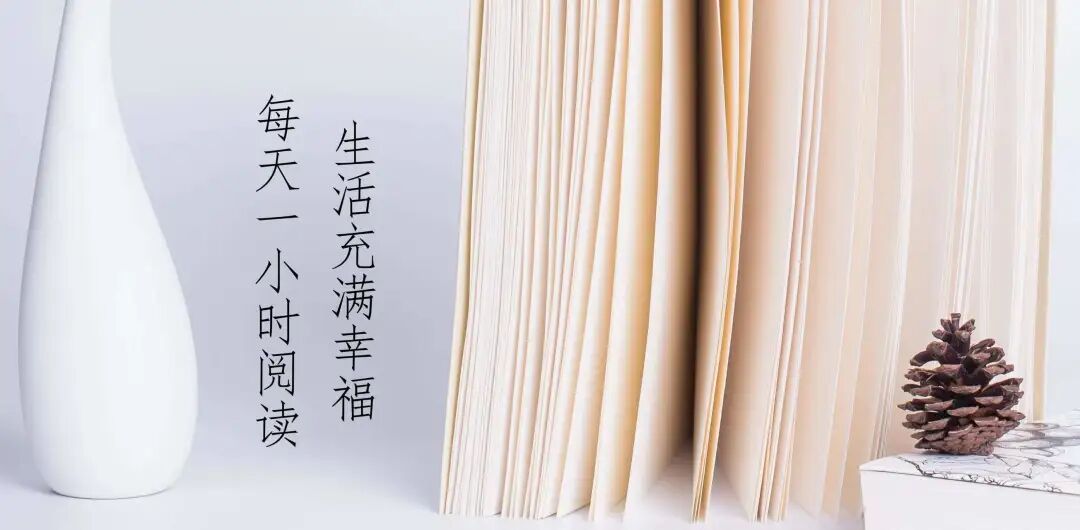 每天一小时阅读
生活充满幸福